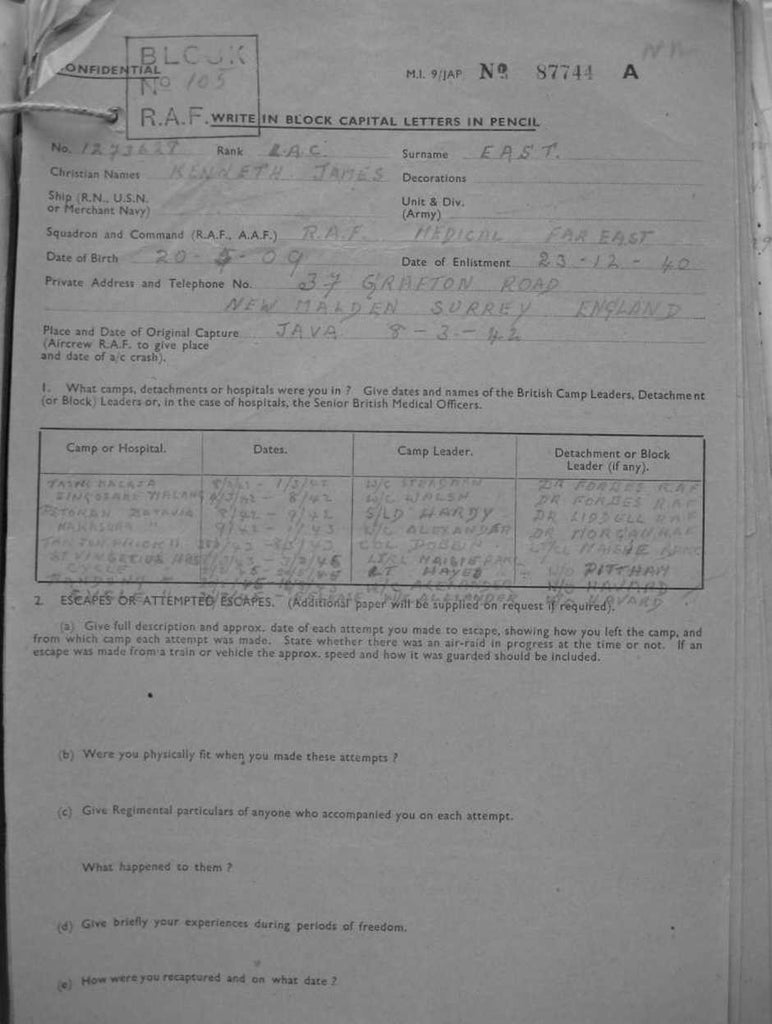 BLOCK
CONFIDENTIAL
No 105
M.I. 9/JAP No 87744 A
R.A.F. WRITE IN BLOCK CAPITAL LETTERS IN PENCIL
No. 1273628 Rank L.A.C. Surname EAST.
Christian Names KENNETH JAMES Decorations
Ship (R.N., U.S.N. or Merchant Navy) Unit & Div. (Army)
Squadron and Command (R.A.F., A.A.F.) R.A.F. MEDICAL FAR EAST
Date of Birth 20-5-09 Date of Enlistment 23-12-40
Private Address and Telephone No. 37 GRAFTON ROAD
NEW MALDEN SURREY ENGLAND
Place and Date of Original Capture JAVA 8-3-42
(Aircrew R.A.F. to give place
and date of a/c crash).
1. What camps, detachments or hospitals were you in ? Give dates and names of the British Camp Leaders, Detachment
(or Block) Leaders or, in the case of hospitals, the Senior British Medical Officers.
Camp or Hospital. Dates. Camp Leader. Detachment or Block Leader (if any).
DR FORBES RAF
MALANG 8/42 W/C WALSH DR FORBES RAF
BATAVIA 8/42 - 9/42 S/LD HARDY DR LIDDELL RAF
9/42 W/C ALEXANDER DR MORGAN RAF
COL
ST VINCENTIUS
CYCLE LT HAYES W/O PITTHAM
W/C ALEXANDER W/O HAVARD
W/C ALEXANDER W/O HAVARD
2. ESCAPES OR ATTEMPTED ESCAPES. (Additional paper will be supplied on request if required).
(a) Give full description and approx. date of each attempt you made to escape, showing how you left the camp, and
from which camp each attempt was made. State whether there was an air-raid in progress at the time or not. If an
escape was made from a train or vehicle the approx. speed and how it was guarded should be included.
(b) Were you physically fit when you made these attempts ?
(c) Give Regimental particulars of anyone who accompanied you on each attempt.
What happened to them ?
(d) Give briefly your experiences during periods of freedom.
(e) How were you recaptured and on what date ?